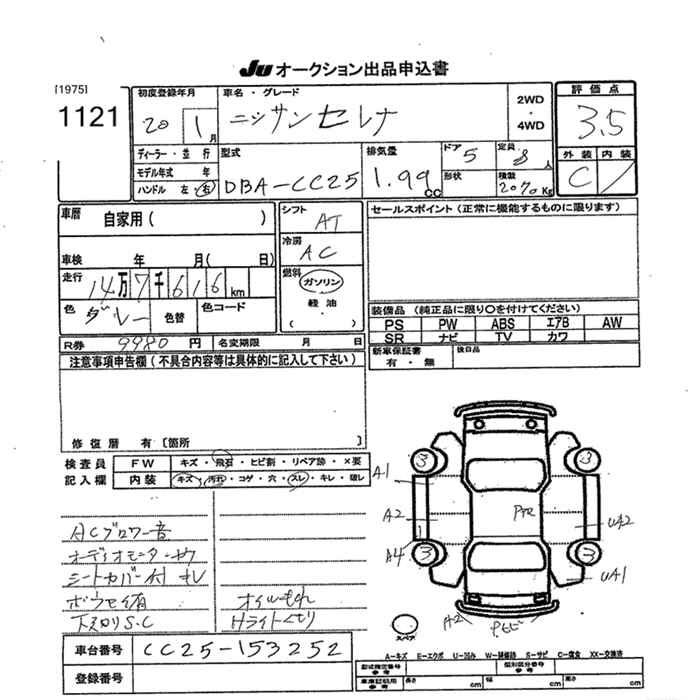 JU オークション出品申込書
[1975]
1121
初度登録年月
20 1 月
車名・グレード
ニッサン セレナ
2WD
・
4WD
評価点
3.5
外装 内装
C
ディーラー・並行
モデル年式 年
ハンドル 左 右
型式
DBA-CC25
排気量
1.99 CC
ドア
5
定員
8 人
形状
積載
2070 Kg
車歴
自家用 ( )
車検 年 月 (日)
走行
14万7千616 km
色
グレー
色替
色コード
シフト
AT
冷房
AC
燃料
ガソリン
軽油
・
( )
セールスポイント (正常に機能するものに限ります)
装備品 (純正品に限り○を付けてください)
PS PW ABS エアB AW
SR ナビ TV カワ
新車保証書
有・無
後日品
R券 9980 円
名変期限 月 日
注意事項申告欄 (不具合内容等は具体的に記入して下さい)
修復暦 有 〔箇所 〕
検査員
記入欄
FW キズ・飛石・ヒビ割・リペア跡・×要
内装 キズ・汚れ・コゲ・穴・スレ・キレ・破レ
ACブロワー音
オーディオモニター
シートカバー付
オイルもれ
下廻りS.C
Hライトくもり
車台番号 CC25-153252
登録番号
3
3
A1
A2
A4
UA2
3
3
UA1
A2
スペア
A-キズ E-エクボ U-凹み W-補修跡 S-サビ C-腐食 XX-交換済
型式指定番号
類別区分番号
車庫証明用
参考
長さ cm
幅 cm
高さ cm